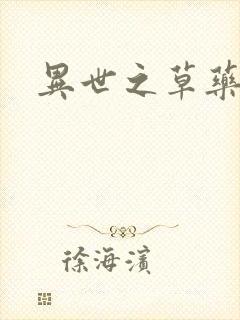 異世之草藥
徐海濱